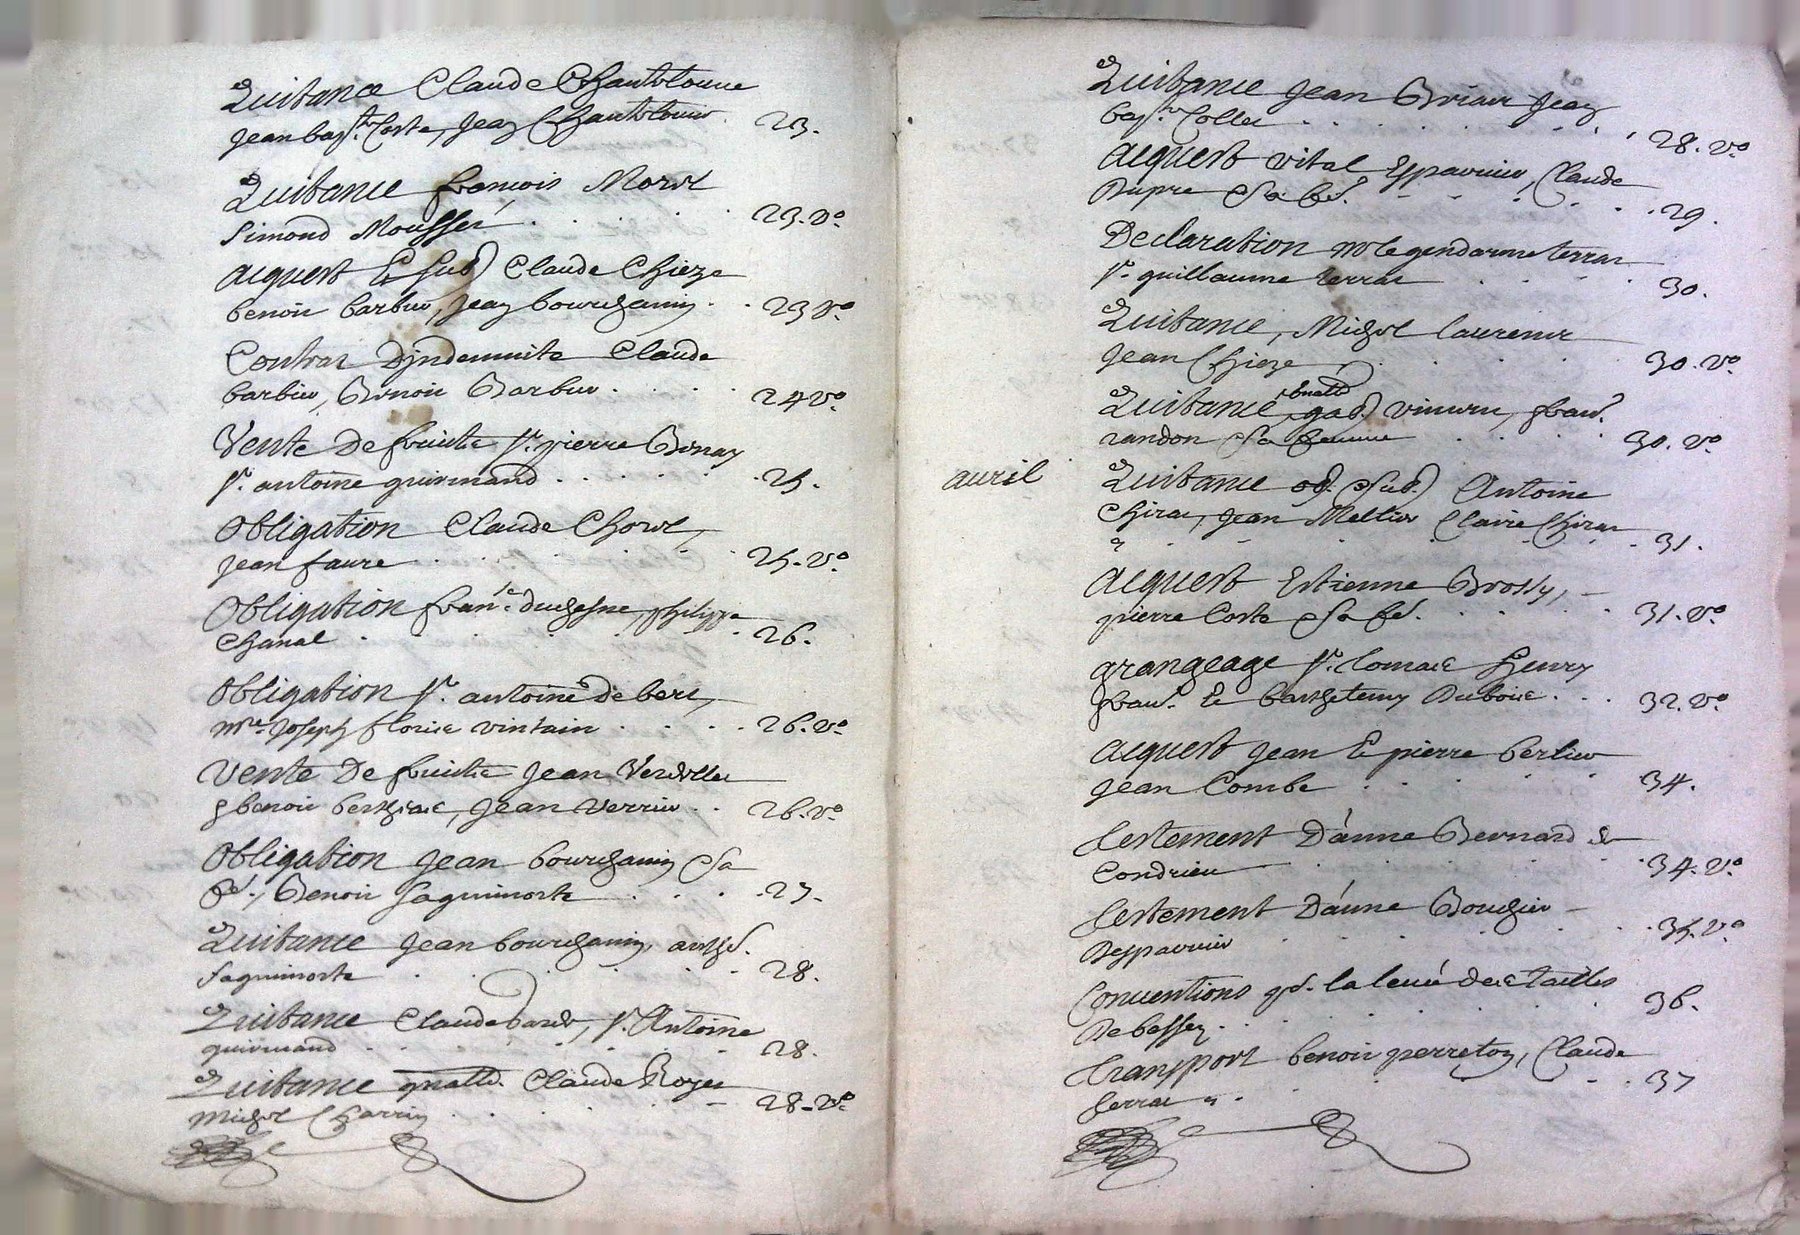 Quitance Claude Chantelouue
Jean bapte Coste, Jean Chantelouue. 23.
Quitance françois Morel
Simond Mousset . . . . . 23. Vo.
Acquest Et sub) Claude Chieze
benoit barbier, Jean bourchanin . . 23 Vo.
Contrat D'jndemnite Claude
barbier, Benoit Barbier . . . . 24 Vo.
Vente De fruicts Sr. pierre Bonay
Sr. antoine guirmand . . . . . 25.
Obligation Claude Chorel,
Jean faure . . . . . 25. Vo.
Obligation franc. duchesne, philippe
Chanal . . . . . 26.
Obligation Sr. antoine de bert,
mre. Joseph floris vintain . . . . 26. Vo.
Vente De fruicts Jean Verdollet
benoit berthiat, Jean Verrier . . 26. Vo.
Obligation Jean bourchanin & sa
fe., Benoit saquimorte . . . . 27.
Quitance Jean bourchanin,
Saquimorte . . . . . 28.
Quitance Claude bard, Sr. Antoine
guirmand . . . . . 28.
Quitance Claude Royer
Michel Charrin . . . . . 28. Vo.
Quitance Jean Briair Jean
bapt. Collet . . . . . 28. Vo.
Acquest vital Esparuier, Claude
Dupre & sa fe. . . . . 29.
Declaration Mr legendarme terrar
Sr. guillaume terrar . . . . 30.
Quitance, Michel laurent
Jean Chieze . . . . . 30. Vo.
Quitance, franc.
randon & sa femme . . . . 30. Vo.
auril
Quitance ob. & sub.) Antoine
Chirat, Jean Meltier Claire Chirat
. . . . . 31.
Acquest Estienne Brossy,
pierre Coste & sa fe. . . . . 31. Vo.
grangeage Sr. Henry
franc. Et barthelemy Duboix . . . 32. Vo.
Acquest Jean Et pierre berlier
Jean Combe . . . . . 34.
Testement D'anne Bernard de
Condrieu . . . . . 34. Vo.
Testement D'anne Bougier
Desparuier . . . . . 35. Vo.
Conuentions pr. la leuée des Tailles
De bessey . . . . . 36.
Transport benoit perreton, Claude
ferrar . . . . . 37